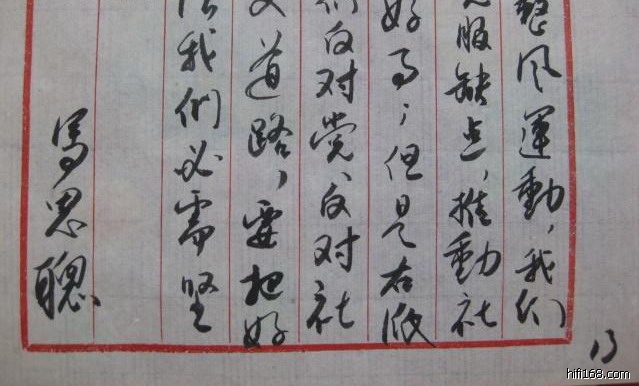 整风運動,我们
服缺点,推動社
好事;但是右派
们反对党、反对社
道路,要把好
我們必需坚
馬思聰
13
hifi168.com